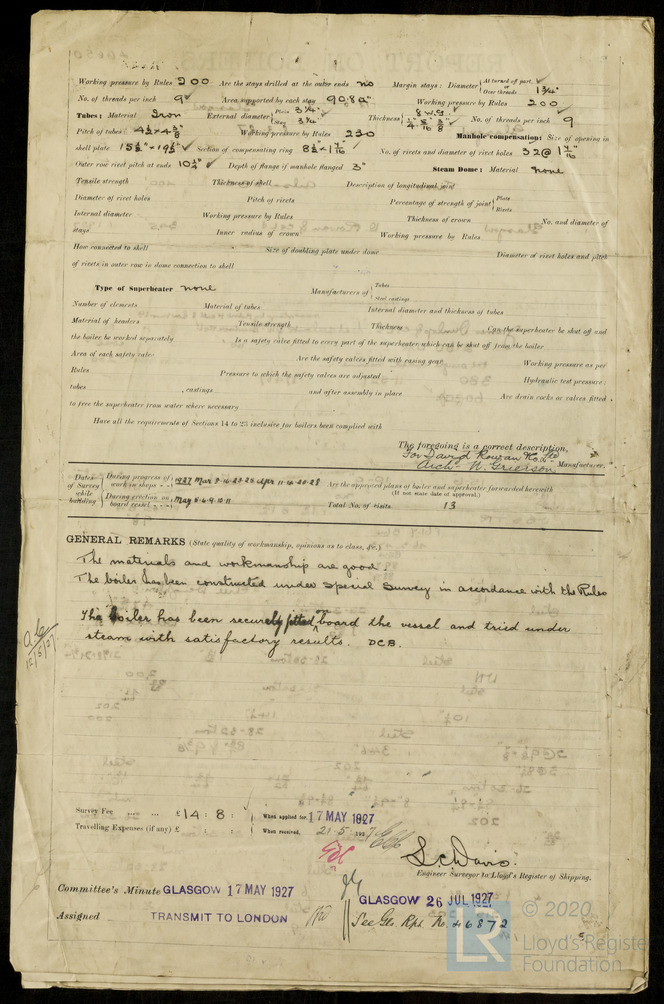 Working pressure by Rules 200 Are the stays drilled at the outer ends no Margin stays: Diameter { At turned off part, or Over threads 1 3/4"
No. of threads per inch 9 Area supported by each stay 90.8 □" Working pressure by Rules 200
Tubes: Material Iron External diameter { Plain 3 1/4" Stay 3 1/4" Thickness { 8 W.G. No. of threads per inch 9
Pitch of tubes 4 1/2" × 4 3/8" Working pressure by Rules 230 Manhole compensation: Size of opening in
shell plate 15 1/2" × 19 1/2" Section of compensating ring 8 1/2" × 1 7/16" No. of rivets and diameter of rivet holes 32 @ 1 1/16"
Outer row rivet pitch at ends 10 1/4" Depth of flange if manhole flanged 3" Steam Dome: Material none
Tensile strength Thickness of shell Description of longitudinal joint
Diameter of rivet holes Pitch of rivets Percentage of strength of joint { Plate Rivets
Internal diameter Working pressure by Rules Thickness of crown No. and diameter of
stays Inner radius of crown Working pressure by Rules
How connected to shell Size of doubling plate under dome Diameter of rivet holes and pitch
of rivets in outer row in dome connection to shell
Type of Superheater none Manufacturers of { Tubes Steel castings
Number of elements Material of tubes Internal diameter and thickness of tubes
Material of headers Tensile strength Thickness Can the superheater be shut off and
the boiler be worked separately Is a safety valve fitted to every part of the superheater which can be shut off from the boiler
Area of each safety valve Are the safety valves fitted with easing gear Working pressure as per
Rules Pressure to which the safety valves are adjusted Hydraulic test pressure:
tubes castings and after assembly in place Are drain cocks or valves fitted
to free the superheater from water where necessary
Have all the requirements of Sections 14 to 23 inclusive for boilers been complied with
The foregoing is a correct description,
For David Rowan & Co. Ltd
Archd. N. Grierson Manufacturer.
Dates of Survey while building { During progress of work in shops - - 1927 Mar 9.16.23.25 Apr 11.16.20.28 Are the approved plans of boiler and superheater forwarded herewith
(If not state date of approval.)
During erection on board vessel - - - May 5.6.9.10.11 Total No. of visits 13
GENERAL REMARKS (State quality of workmanship, opinions as to class, &c.)
The materials and workmanship are good.
The boiler has been constructed under Special Survey in accordance with the Rules
The boiler has been securely fitted on board the vessel and tried under
steam with satisfactory results. DCB.
12/5/27
Survey Fee ... ... £ 14 : 8 : When applied for, 17 MAY 1927
Travelling Expenses (if any) £ : : When received, 21.5.1927
S. C. Davis.
Engineer Surveyor to Lloyd's Register of Shipping.
Committee's Minute GLASGOW 17 MAY 1927 GLASGOW 26 JUL 1927
Assigned TRANSMIT TO LONDON See Gls. Rpt. No. 46872
© 2020
LR Lloyd's Register
Foundation